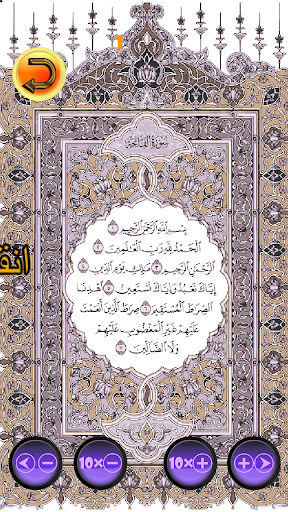 1
سُورَةُ الْفَاتِحَةِ
بِسْمِ ٱللَّهِ ٱلرَّحْمَٰنِ ٱلرَّحِيمِ ١
ٱلْحَمْدُ لِلَّهِ رَبِّ ٱلْعَٰلَمِينَ ٢
ٱلرَّحْمَٰنِ ٱلرَّحِيمِ ٣ مَٰلِكِ يَوْمِ ٱلدِّينِ ٤
إِيَّاكَ نَعْبُدُ وَإِيَّاكَ نَسْتَعِينُ ٥ ٱهْدِنَا
ٱلصِّرَٰطَ ٱلْمُسْتَقِيمَ ٦ صِرَٰطَ ٱلَّذِينَ أَنْعَمْتَ
عَلَيْهِمْ غَيْرِ ٱلْمَغْضُوبِ عَلَيْهِمْ
وَلَا ٱلضَّآلِّينَ ٧
< − 10× − 10× + + >